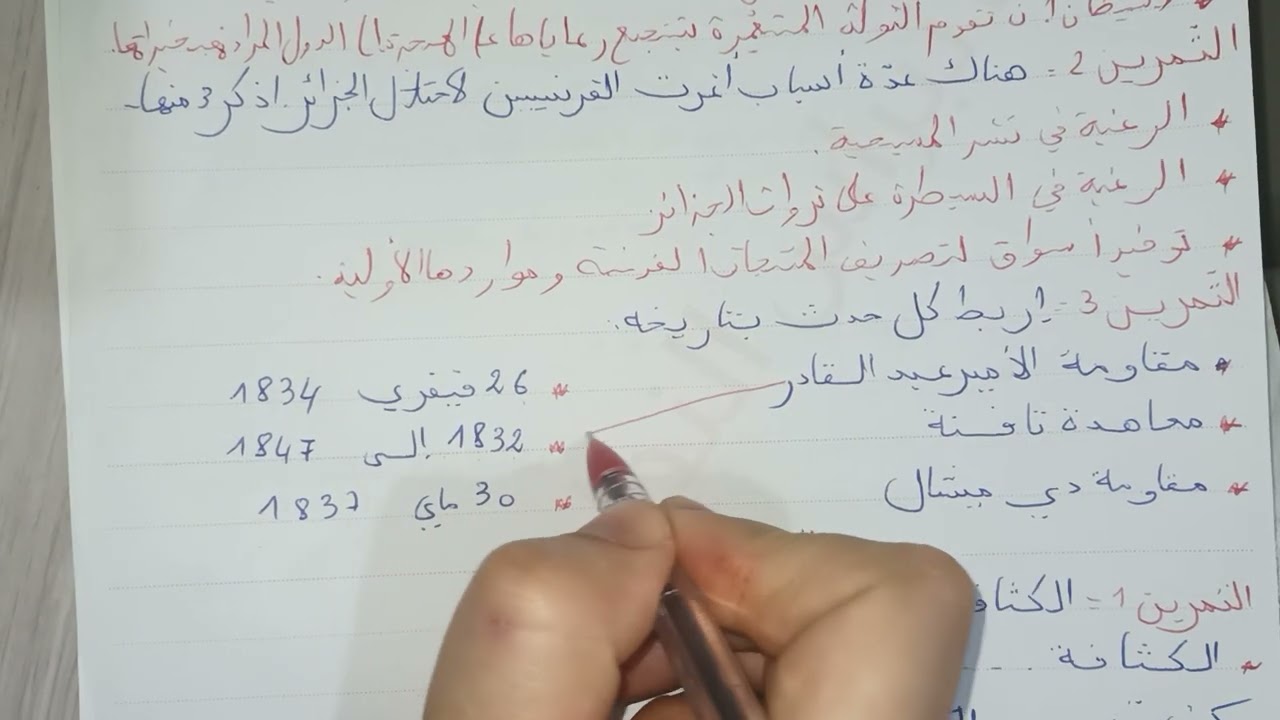 أن تقوم الدولة المستعمرة بتشجيع رعاياها على الهجرة إلى الدول المراد نهب خيراتها.
التمرين 2 = هناك عدّة أسباب أغرت الفرنسيين لاحتلال الجزائر. اذكر 3 منها.
* الرغبة في نشر المسيحية.
* الرغبة في السيطرة على ثروات الجزائر
* توفير أسواق لتصريف المنتجات الفرنسية ومواردها الأولية.
التمرين 3 = اربط كل حدث بتاريخه.
* مقاومة الأمير عبد القادر * 26 فيفري 1834
* معاهدة تافنة * 1832 إلى 1847
* مقاومة دي ميشال * 30 ماي 1837
التمرين 1 = الكثاف
* الكثافة